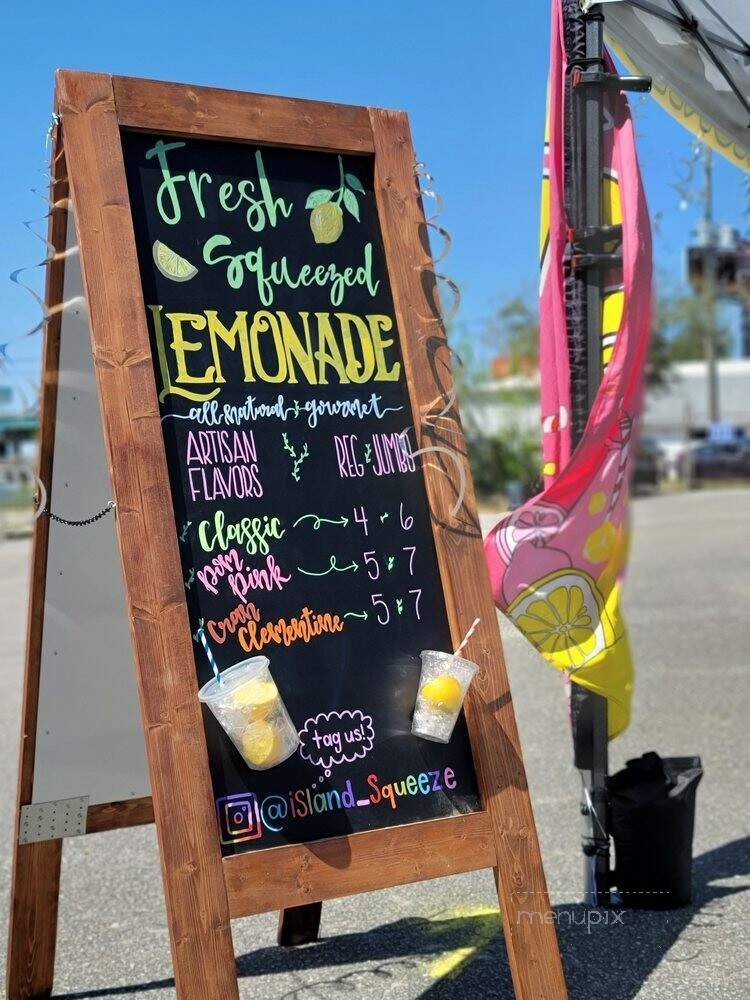 Fresh
Squeezed
LEMONADE
all natural gourmet
ARTISAN FLAVORS
REG JUMBO
Classic 4 6
Pom Pink 5 7
Cran Clementine 5 7
tag us!
@island_Squeeze
menupix